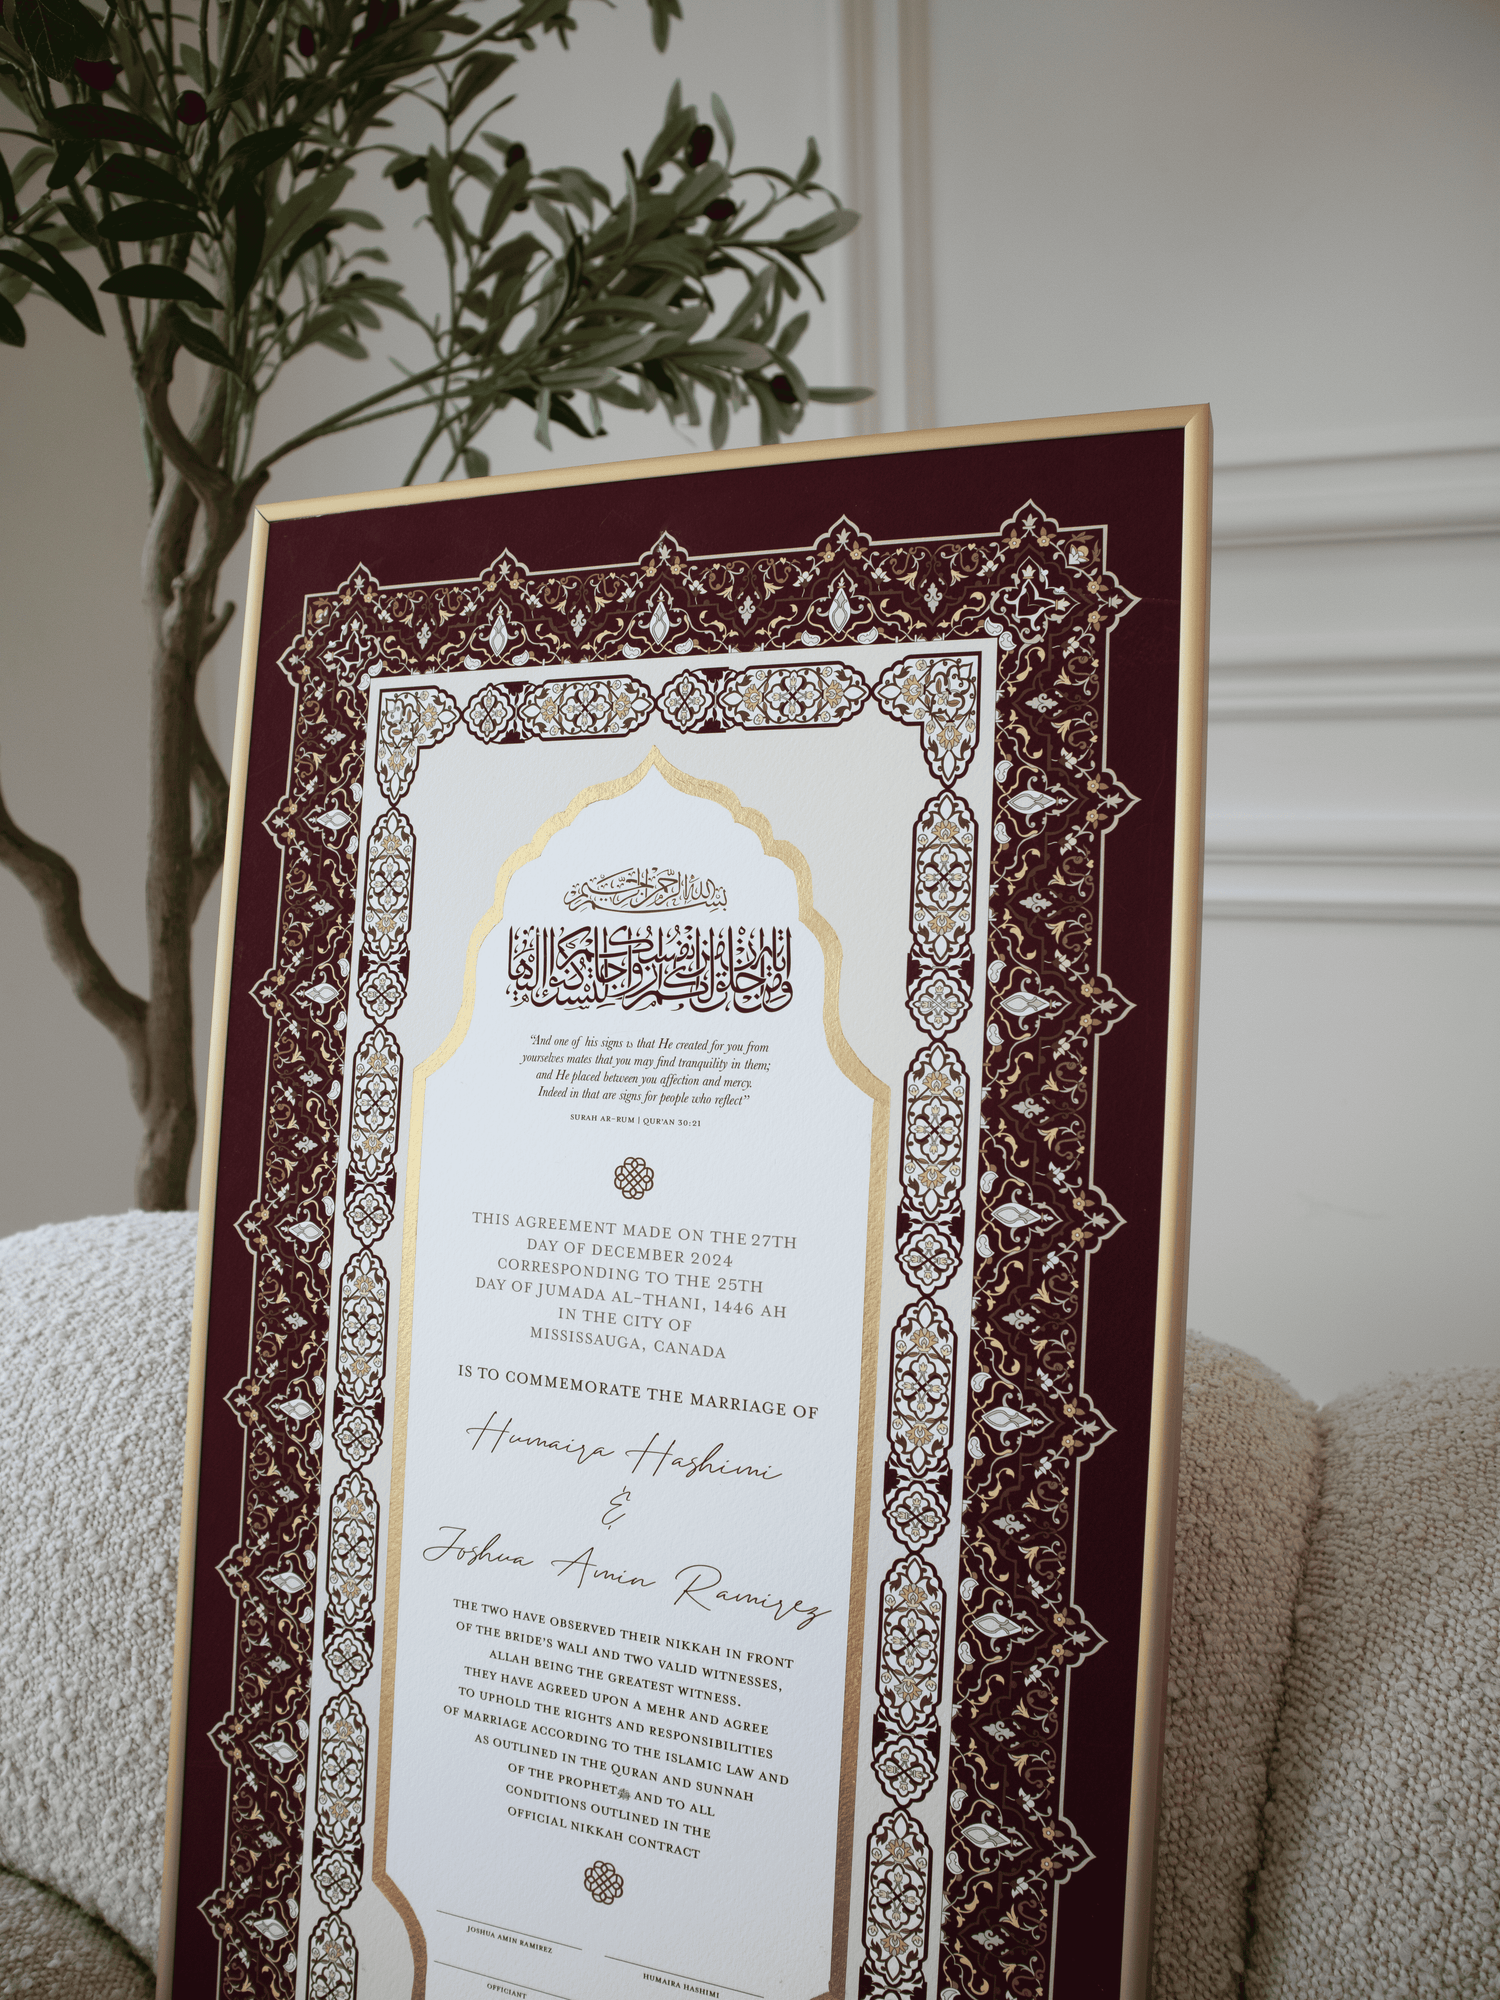 بسم الله الرحمن الرحيم
ومن آياته أن خلق لكم من أنفسكم أزواجا لتسكنوا إليها
“And one of his signs is that He created for you from
yourselves mates that you may find tranquility in them;
and He placed between you affection and mercy.
Indeed in that are signs for people who reflect”
SURAH AR-RUM | QUR'AN 30:21
THIS AGREEMENT MADE ON THE 27TH
DAY OF DECEMBER 2024
CORRESPONDING TO THE 25TH
DAY OF JUMADA AL-THANI, 1446 AH
IN THE CITY OF
MISSISSAUGA, CANADA
IS TO COMMEMORATE THE MARRIAGE OF
Humaira Hashimi
&
Joshua Amin Ramirez
THE TWO HAVE OBSERVED THEIR NIKKAH IN FRONT
OF THE BRIDE'S WALI AND TWO VALID WITNESSES,
ALLAH BEING THE GREATEST WITNESS.
THEY HAVE AGREED UPON A MEHR AND AGREE
TO UPHOLD THE RIGHTS AND RESPONSIBILITIES
OF MARRIAGE ACCORDING TO THE ISLAMIC LAW AND
AS OUTLINED IN THE QURAN AND SUNNAH
OF THE PROPHET ﷺ AND TO ALL
CONDITIONS OUTLINED IN THE
OFFICIAL NIKKAH CONTRACT
JOSHUA AMIN RAMIREZ
HUMAIRA HASHIMI
OFFICIANT